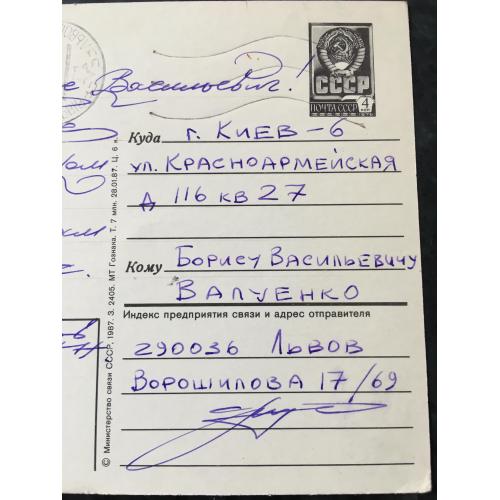 Васильевич!
СССР
ПОЧТА СССР
4
Куда г. КИЕВ-6
ул. КРАСНОАРМЕЙСКАЯ
д 116 кв 27
Кому БОРИСУ ВАСИЛЬЕВИЧУ
ВАЛУЕНКО
Индекс предприятия связи и адрес отправителя
290036 ЛЬВОВ
ВОРОШИЛОВА 17/69
© Министерство связи СССР, 1987. З. 2405. МТ Гознака. Т. 7 млн. 28.01.87. Ц. 6 к.